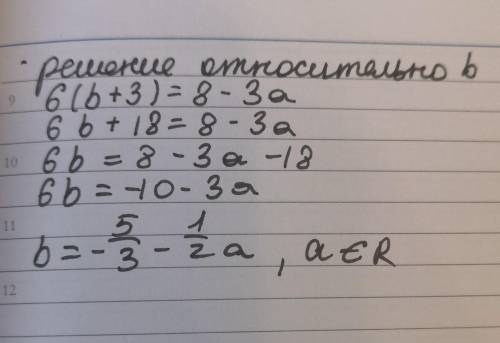 · решение относительно b
9 6(b+3) = 8 - 3a
6b + 18 = 8 - 3a
10 6b = 8 - 3a - 18
6b = -10 - 3a
11 b = -5/3 - 1/2 a , a ∈ R
12